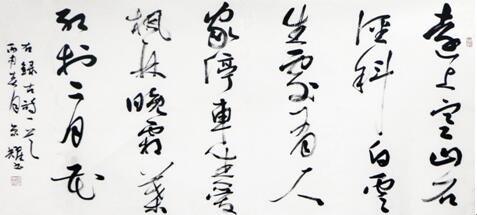 遠上寒山石
徑斜白雲
生處有人
家停車坐愛
楓林晚霜葉
紅於二月花
右録古詩一首
丙申春月